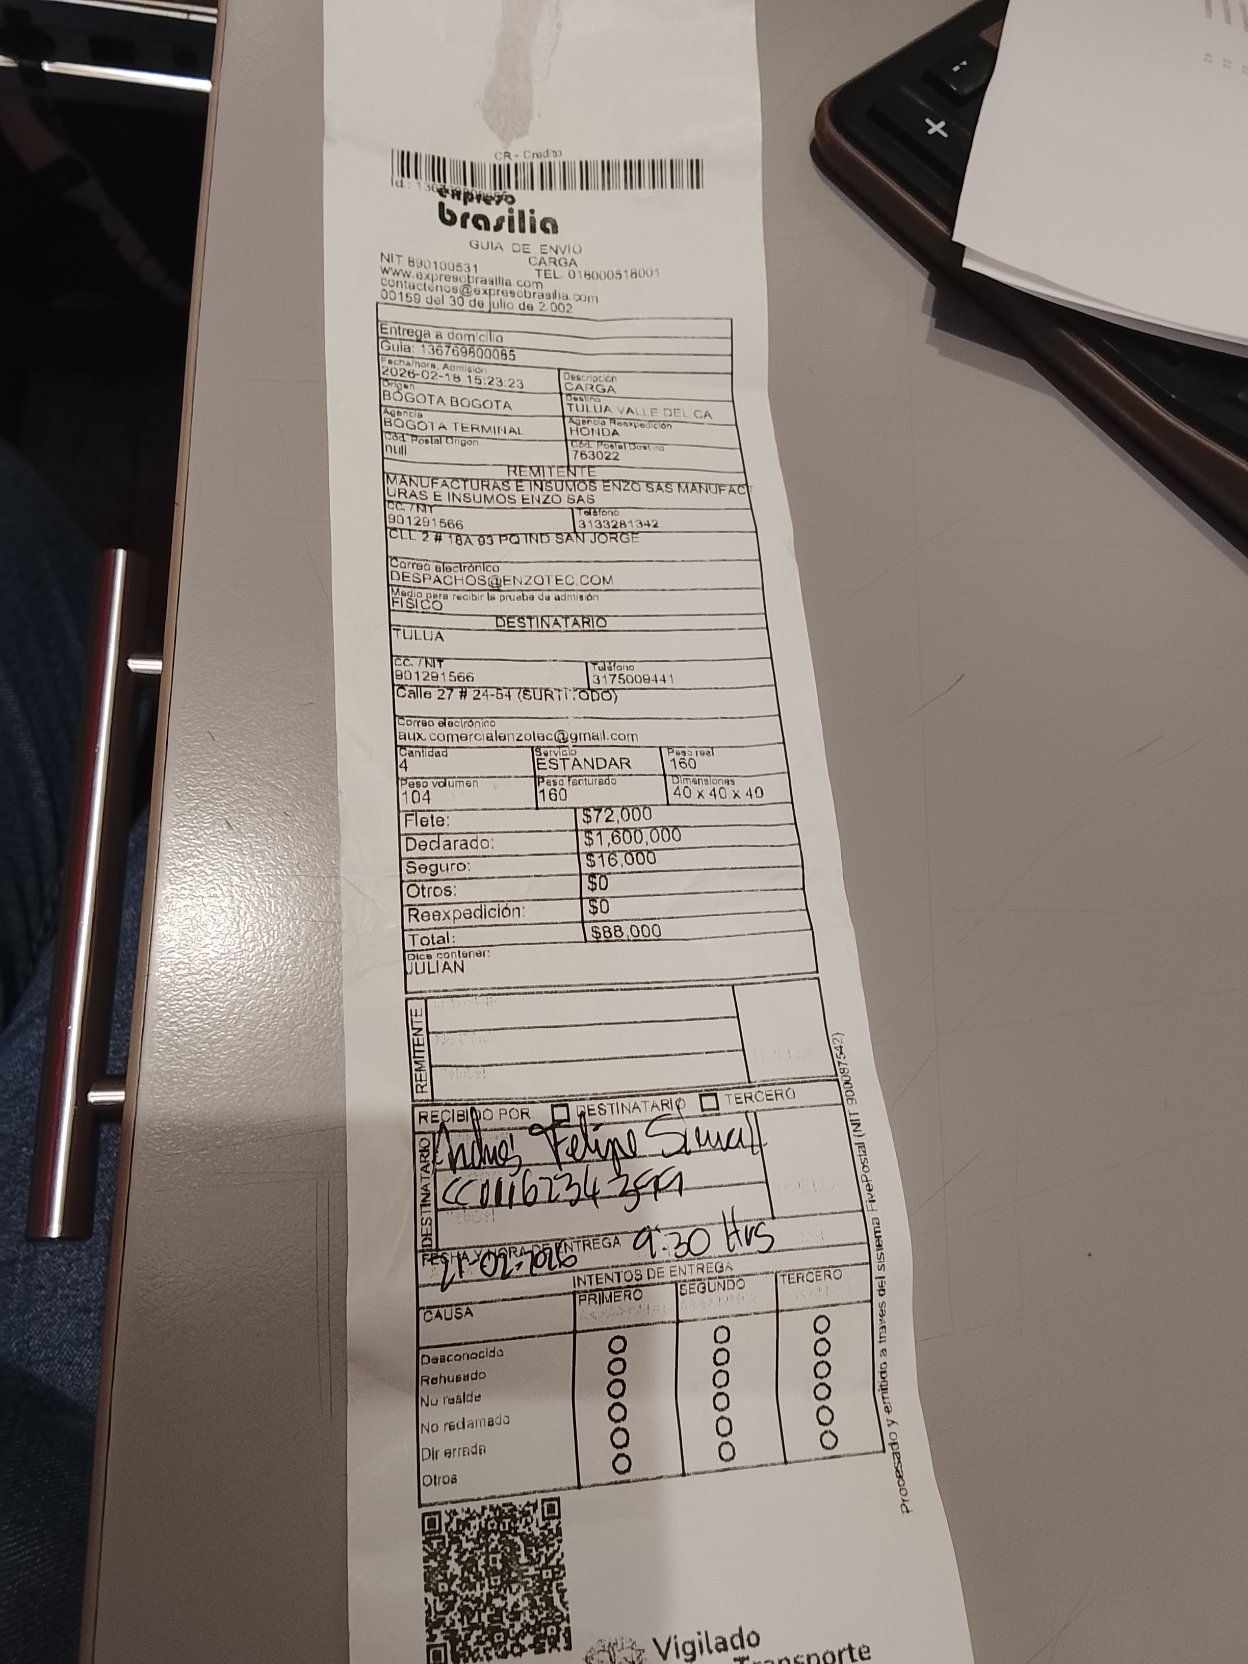 CR - Credito
expreso
brasilia
GUIA DE ENVIO
NIT 890100531 CARGA
www.expresobrasilia.com TEL. 018000518001
contactenos@expresobrasilia.com
00159 del 30 de julio de 2.002
Entrega a domicilio
Guia: 136769800085
Fecha/hora, Admisión Descripción
2026-02-18 15:23:23 CARGA
Origen Destino
BOGOTA BOGOTA TULUA VALLE DEL CA
Agencia Agencia Reexpedición
BOGOTA TERMINAL HONDA
Cód. Postal Origen Cód. Postal Destino
null 763022
REMITENTE
MANUFACTURAS E INSUMOS ENZO SAS MANUFACT
URAS E INSUMOS ENZO SAS
CC. / NIT Teléfono
901291566 3133281342
CLL 2 # 18A 93 PQ IND SAN JORGE
Correo electrónico
DESPACHOS@ENZOTEC.COM
Medio para recibir la prueba de admisión
FISICO
DESTINATARIO
TULUA
CC. / NIT Teléfono
901291566 3175009441
Calle 27 # 24-54 (SURTITODO)
Correo electrónico
aux.comercialenzotec@gmail.com
Cantidad Servicio Peso real
4 ESTANDAR 160
Peso volumen Peso facturado Dimensiones
104 160 40 x 40 x 40
Flete: $72,000
Declarado: $1,600,000
Seguro: $16,000
Otros: $0
Reexpedición: $0
Total: $88,000
Dice contener:
JULIAN
REMITENTE
RECIBIDO POR DESTINATARIO TERCERO
DESTINATARIO
Andres Felipe
FECHA Y HORA DE ENTREGA 9:30 Hrs
21-02-2026
INTENTOS DE ENTREGA
CAUSA PRIMERO SEGUNDO TERCERO
Desconocido
Rehusado
No reside
No reclamado
Dir errada
Otros
Procesado y emitido a traves del sistema FivePostal (NIT 900087542)
Vigilado
Transporte
+